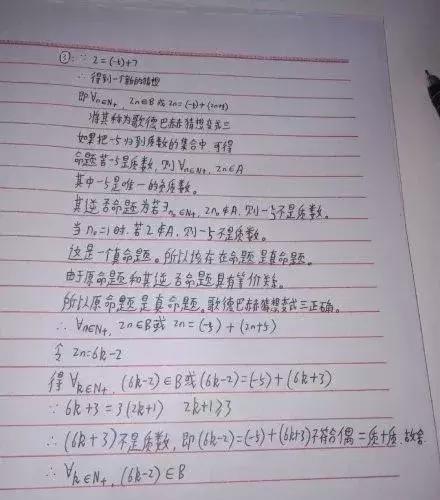 ③:∵ 2=(-5)+7
∴ 得到一个新的猜想
即∀n∈N+, 2n∈B或2n=(-5)+(2n+5)
将其称为歌德巴赫猜想变式三
如果把-5归到质数的集合中 可得
命题若-5是质数,则∀n∈N+, 2n∈A
其中-5是唯一的负质数。
其逆否命题为若∃n₀∈N+, 2n₀∉A, 则-5不是质数。
当n₀=1时.若2∉A,则-5不是质数。
这是一个真命题。所以该存在命题是真命题。
由于原命题和其逆否命题具有等价关系。
所以原命题是真命题。歌德巴赫猜想变式三正确。
∴ ∀n∈N+, 2n∈B或2n=(-5)+(2n+5)
令 2n=6k-2
得∀k∈N+, (6k-2)∈B或(6k-2)=(-5)+(6k+3)
∵ 6k+3=3(2k+1) 2k+1≥3
∴ (6k+3)不是质数,即(6k-2)=(-5)+(6k+3)不符合偶=质+质.故舍
∴ ∀k∈N+, (6k-2)∈B